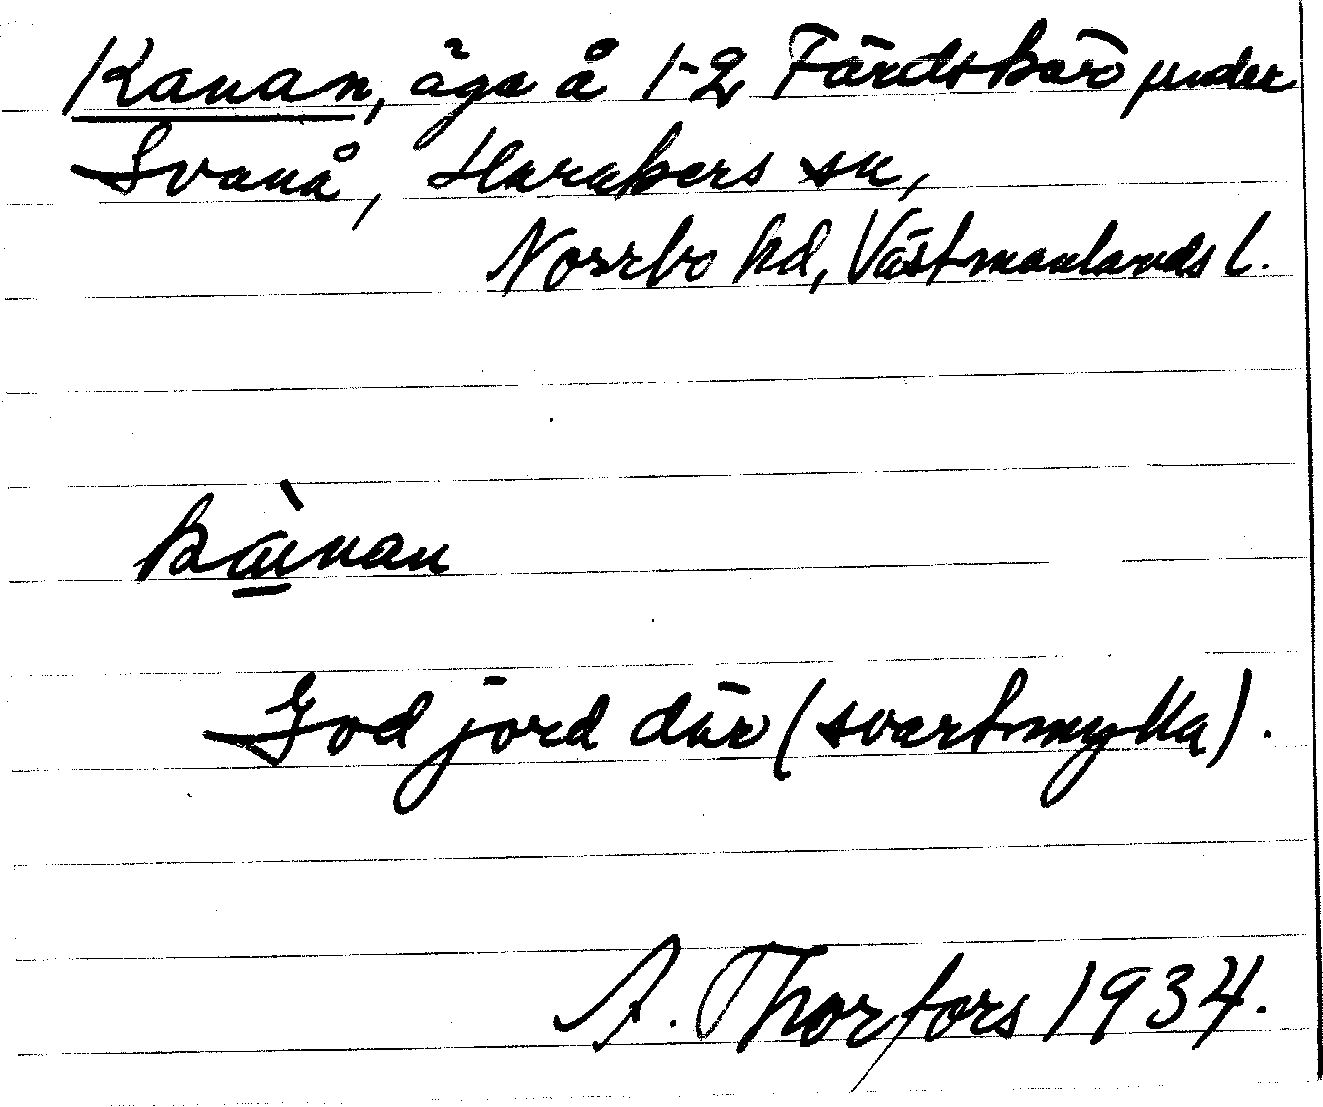 Kanan, äga å 1-2 Färdsbo under
Svanå, Harakers sn,
Norrbo hd, Västmanlands l.
God jord där (svartmylla).
A. Thorfors 1934.